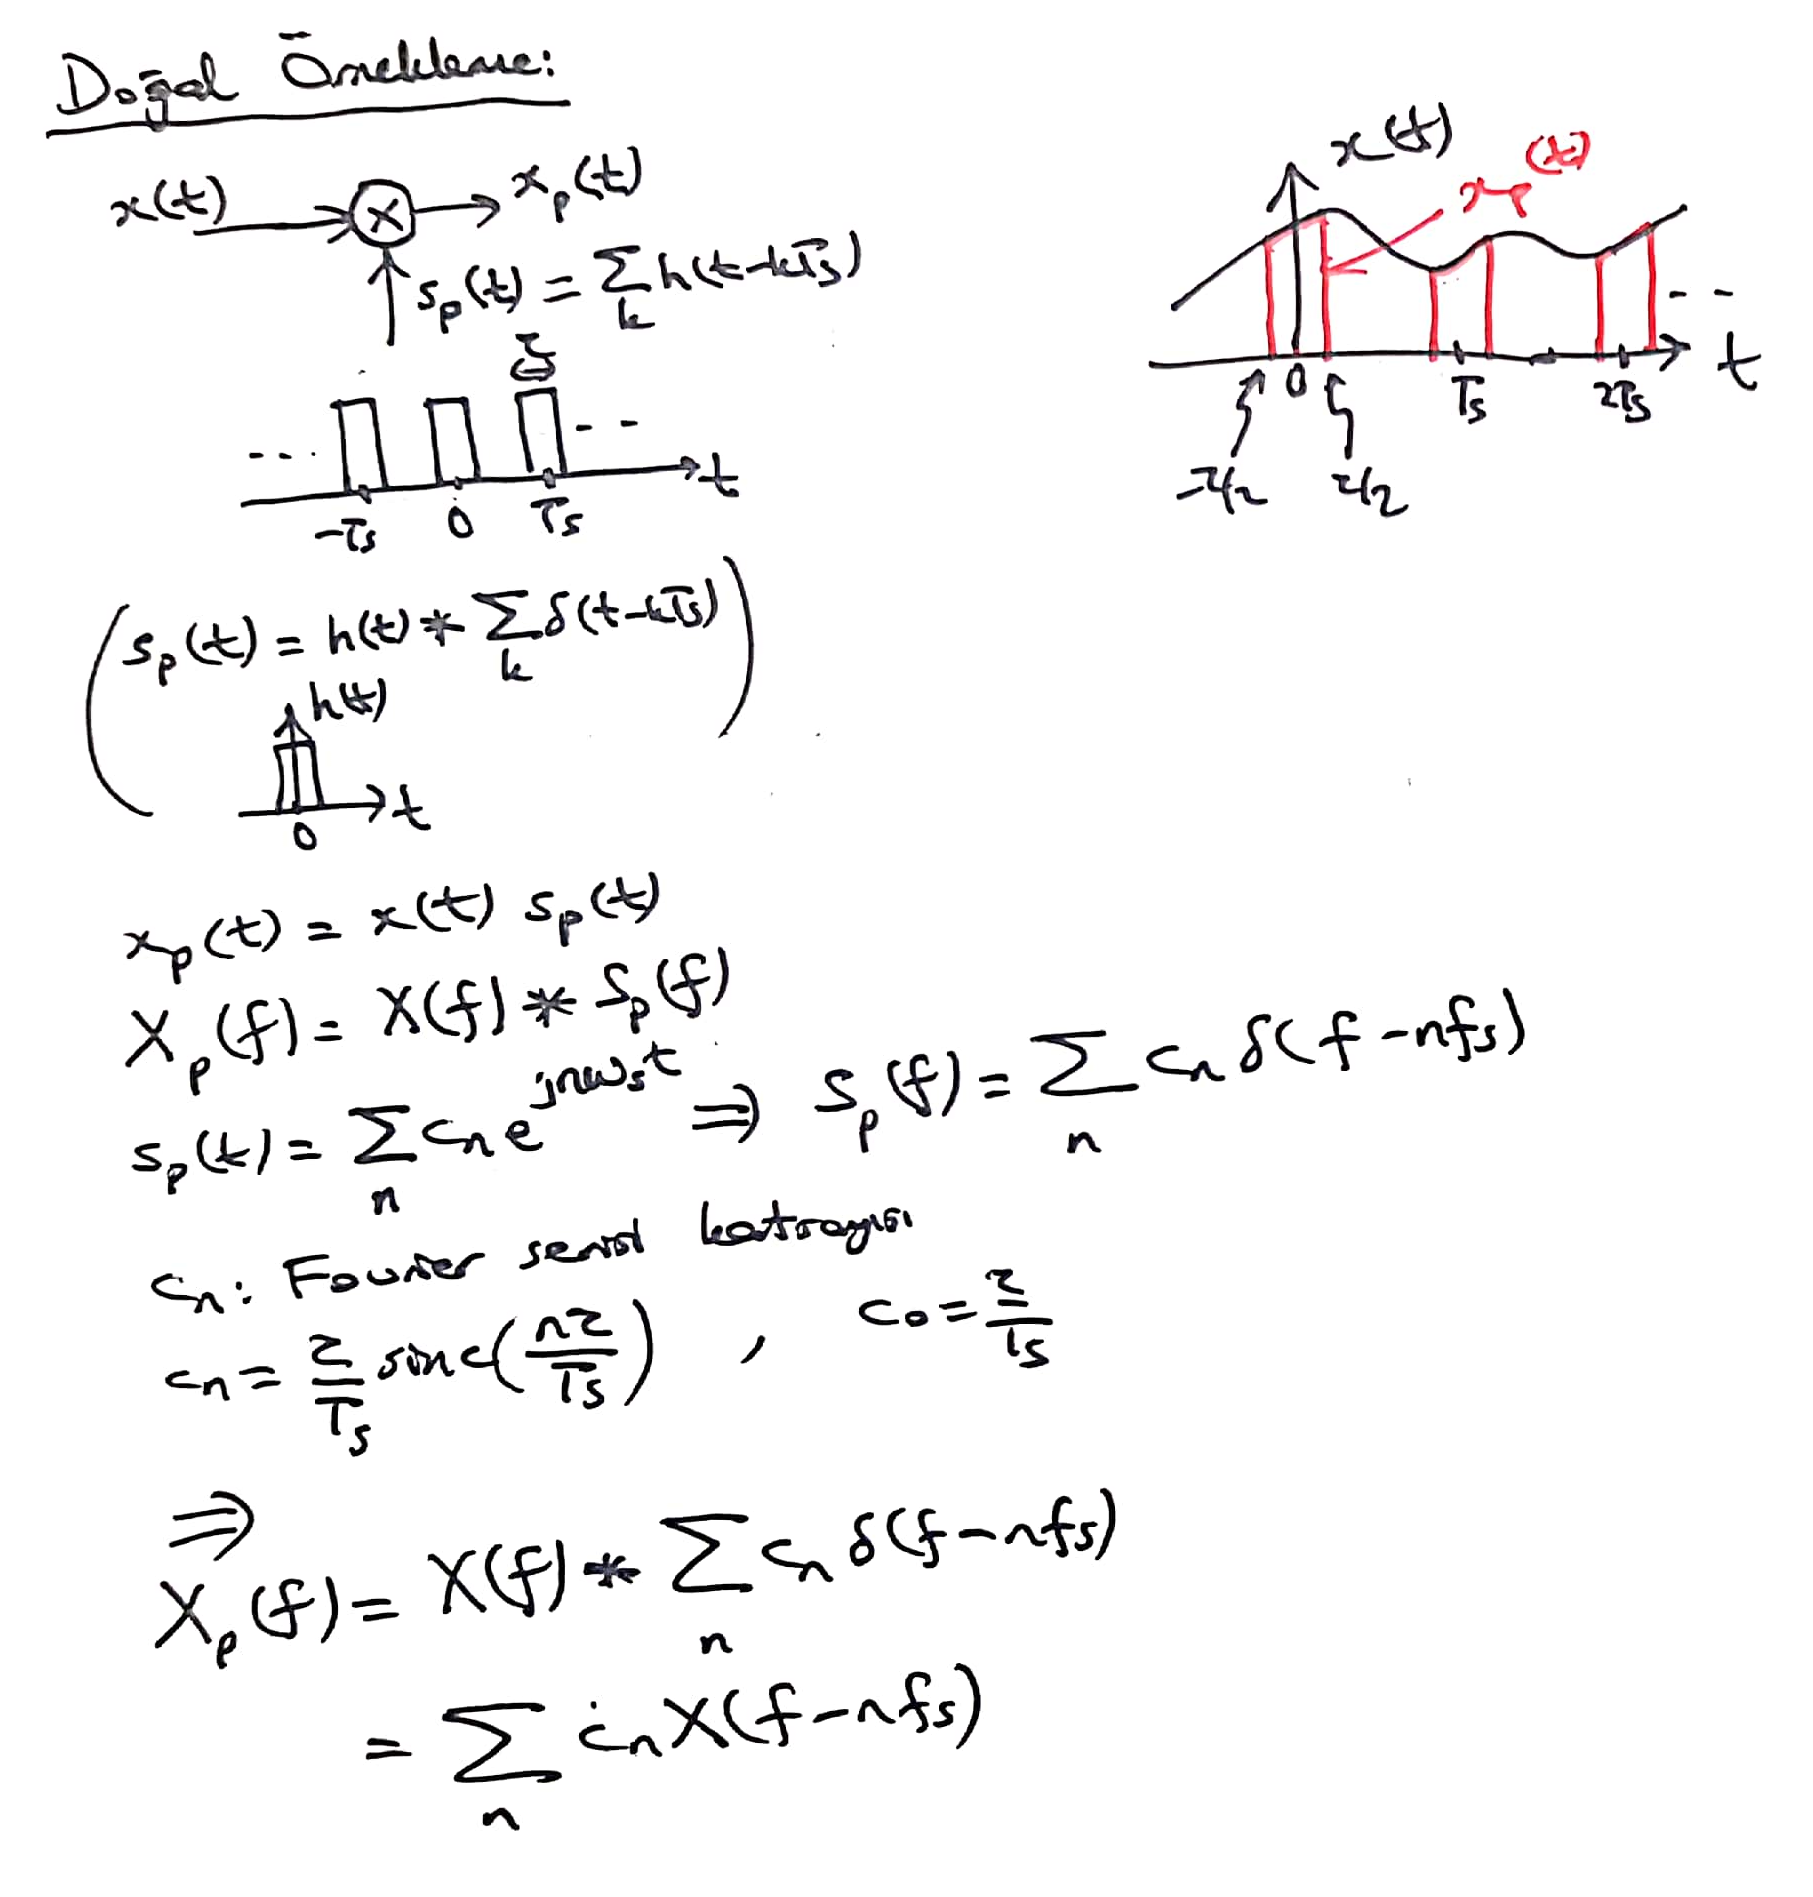 Doğal Örnekleme:
x(t) → ⊗ → x_p(t)
s_p(t) = Σ_k h(t-kTs)
τ
... - - t
-Ts 0 Ts
x(t) x_p(t)
- - t
0 Ts 2Ts
-τ/2 τ/2
(s_p(t) = h(t) * Σ_k δ(t-kTs))
h(t)
t
0
x_p(t) = x(t) s_p(t)
X_p(f) = X(f) * S_p(f)
s_p(t) = Σ_n c_n e^{jnω_s t} ⇒ S_p(f) = Σ_n c_n δ(f-nfs)
c_n: Fourier serisi katsayısı
c_n = τ/T_s sinc(nτ/Ts) , c_0 = τ/Ts
⇒
X_p(f) = X(f) * Σ_n c_n δ(f-nfs)
= Σ_n c_n X(f-nfs)